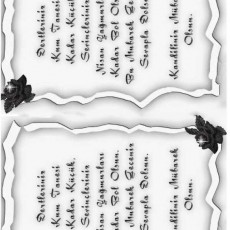 Dertlerinin
Kum Tanesi
Kadar Küçük,
Sevinçlerinin
Nisan Yağmurları
Kadar Bol Olsun.
Bu Mübarek Gecenin
Sevapla Dolsun
Kandiliniz Mübarek
Olsun.
Dertlerinin
Kum Tanesi
Kadar Küçük,
Sevinçlerinin
Nisan Yağmurları
Kadar Bol Olsun.
Bu Mübarek Gecenin
Sevapla Dolsun.
Kandiliniz Mübarek
Olsun.